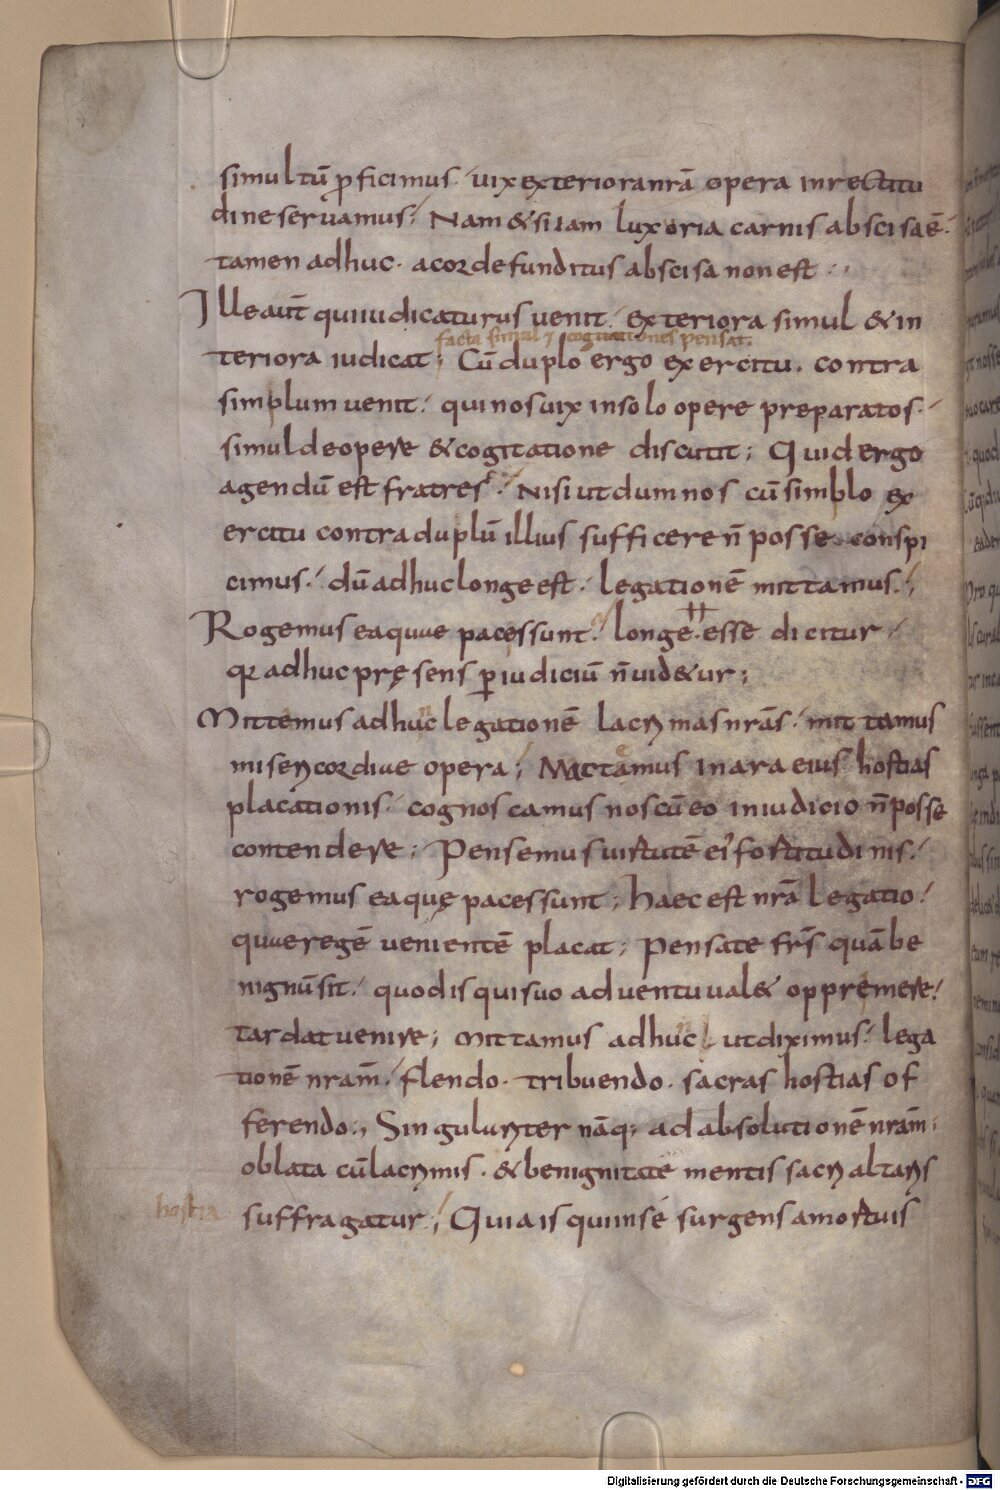 simul tū ꝓficimus. uix exteriora nrā opera in rectitu
dine seruamus; Nam & si iam luxoria carnis abscisa ē.
tamen adhuc. a corde funditus abscisa non est
Ille aut̄ qui iudicaturus uenit. exteriora simul & in
facta simul & cogitationes pensat.
teriora iudicat; Cū duplo ergo exercitu. contra
simplum uenit. qui nos uix in solo opere preparatos.
simul de opere & cogitatione discutit; Quid ergo
agendū est fratres. Nisi ut dum nos cū simblo ex
ercitu contra duplū illius sufficere n̄ posse conspi
cimus. dū adhuc longe est. legationē mittamus;
Rogemus ea quae pacis sunt. longe esse dicitur
qr adhuc pręsens ꝑ iudiciū n̄ uid&ur;
Mittemus adhuc legationē lacrymas nrās. mittamus
misericordiae opera; Mactamus in ara eius hostias
placationis. cognoscamus nos cū eo in iudicio n̄ posse
contendere; Pensemus uirtutē ei' fortitudinis.
rogemus ea quę paces sunt; haec est nrā legatio.
quae regē uenientē placat; Pensate frs̄ quā be
nignū sit. quod is qui suo aduentu ual& oppremere.
tardat uenire; Mittamus adhuc ut diximus. lega
tionē nram̄. flendo. tribuendo. sacras hostias of
ferendo; Singulariter nāq; ad absolutionē nram̄.
oblata cū lacrimis. & benignitate mentis sacri altaris
hostia
suffragatur; Quia is qui in se surgens a mortuis
Digitalisierung gefördert durch die Deutsche Forschungsgemeinschaft - DFG